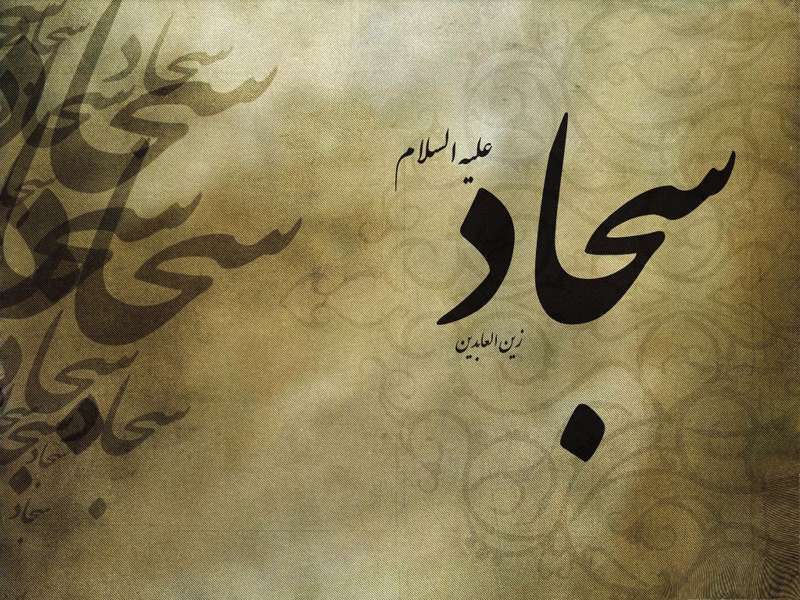 سجاد
علیه السلام
زین العابدین